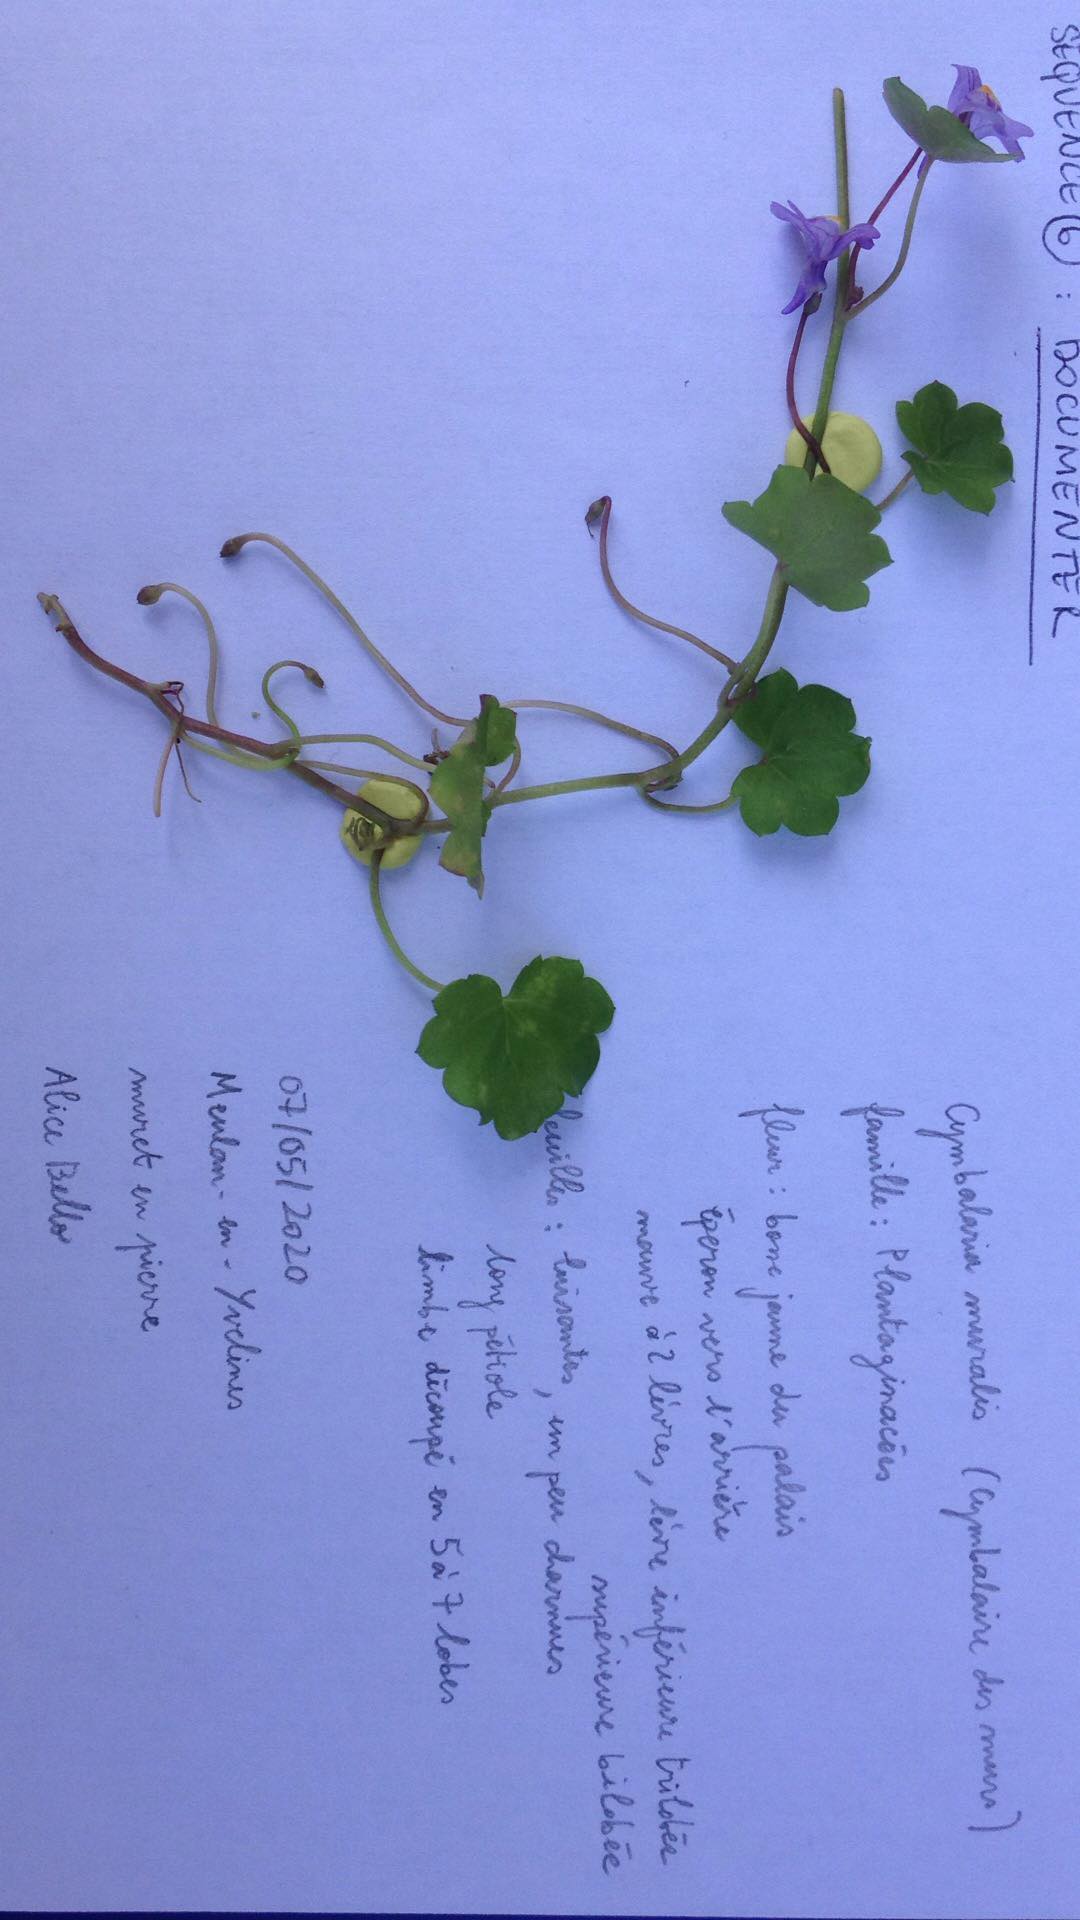 SEQUENCE 6 : DOCUMENTER
Cymbalaria muralis (Cymbalaire des murs)
famille : Plantaginacées
fleur : bosse jaune du palais
éperon vers l'arrière
mauve à 2 lèvres, lèvre inférieure trilobée
supérieure bilobée
feuilles : luisantes, un peu charnues
long pétiole
limbe découpé en 5 à 7 lobes
07/05/2020
Meulan-en-Yvelines
muret en pierre
Alice Bellor